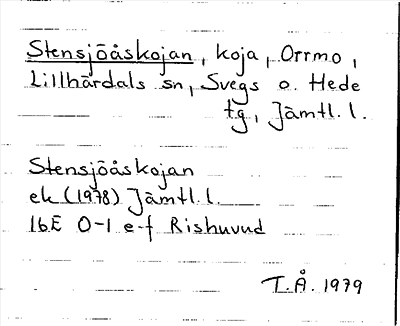 Stensjöåskojan, koja, Orrmo,
Lillhärdals sn, Svegs o. Hede
tg, Jämtl. l.
Stensjöåskojan
ek (1978) Jämtl. l.
16E 0-1 e-f Rishuvud
T.Å. 1979